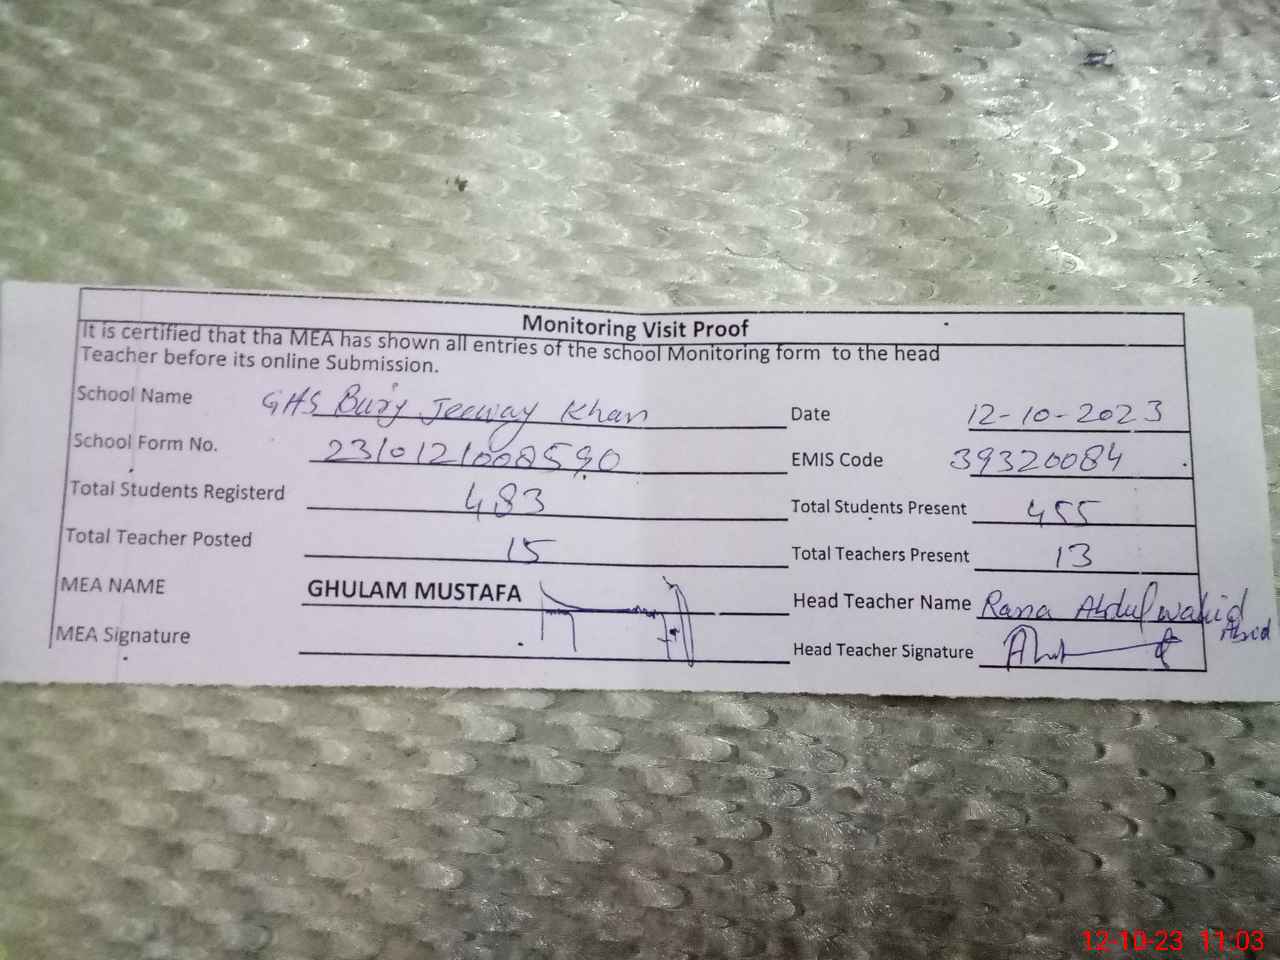 Monitoring Visit Proof
It is certified that tha MEA has shown all entries of the school Monitoring form to the head
Teacher before its online Submission.
School Name GHS Burj Jeeway Khan Date 12-10-2023
School Form No. 2310121008590 EMIS Code 39320084
Total Students Registerd 483 Total Students Present 455
Total Teacher Posted 15 Total Teachers Present 13
MEA NAME GHULAM MUSTAFA Head Teacher Name Rana Abdul Wahid Abid
MEA Signature Head Teacher Signature
12-10-23 11:03